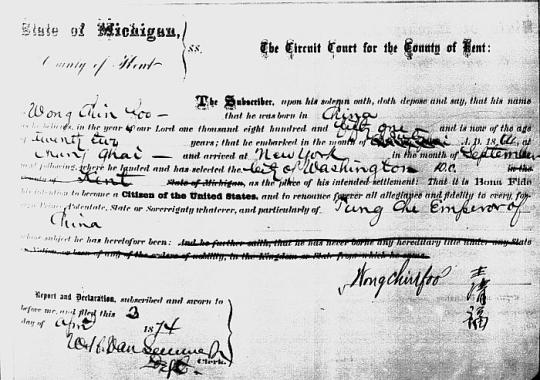 State of Michigan, } ss. The Circuit Court for the County of Kent:
County of Kent
The Subscriber, upon his solemn oath, doth depose and say, that his name
Wong Chin Foo — that he was born in China
as he believes, in the year of our Lord one thousand eight hundred and fifty one and is now of the age
of twenty two years; that he embarked in the month of A.D. 18 at
Chang ghai — and arrived at New York in the month of September
next following, where he landed and selected the City of Washington D.C. in the
of Kent State of Michigan, as the place of his intended settlement: That it is Bona Fide
his intention to become a Citizen of the United States, and to renounce forever all allegiance and fidelity to every
Prince, Potentate, State or Sovereignty whatever, and particularly of Tung Che Emperor of
China
whose subject he has heretofore been: And he further saith, that he has never borne any hereditary title under any State
of nobility, in the Kingdom or State from which he
Wong Chin Foo 王清福
Report and Declaration, subscribed and sworn to
before me, and filed this 3
day of April 1874
Clerk.